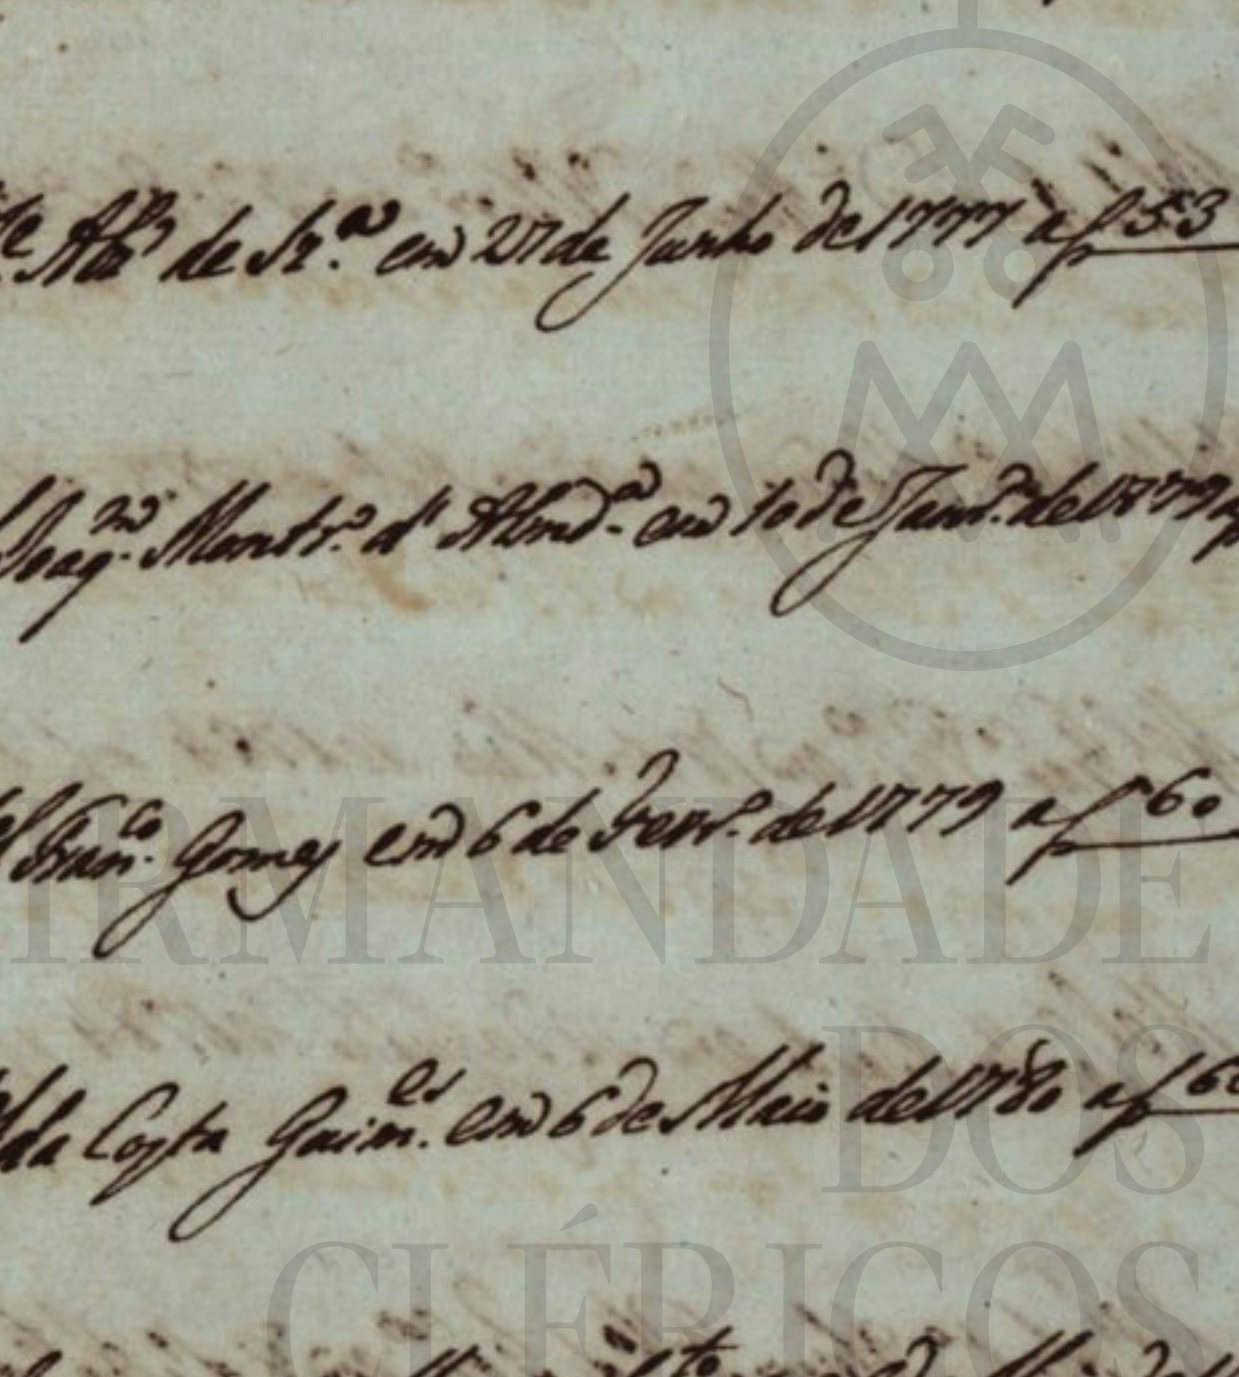 de Sz.ª em 27 de Junho de 1777 af 53
Joaq.m Montr.o d' Almd.a em 10 de Janr.o de 1779 a
Fran.co Gomes em 6 de Fevr.o de 1779 af 60
da Costa Guim.es em 6 de Maio de 1780 af 6
IRMANDADE
DOS
CLÉRIGOS